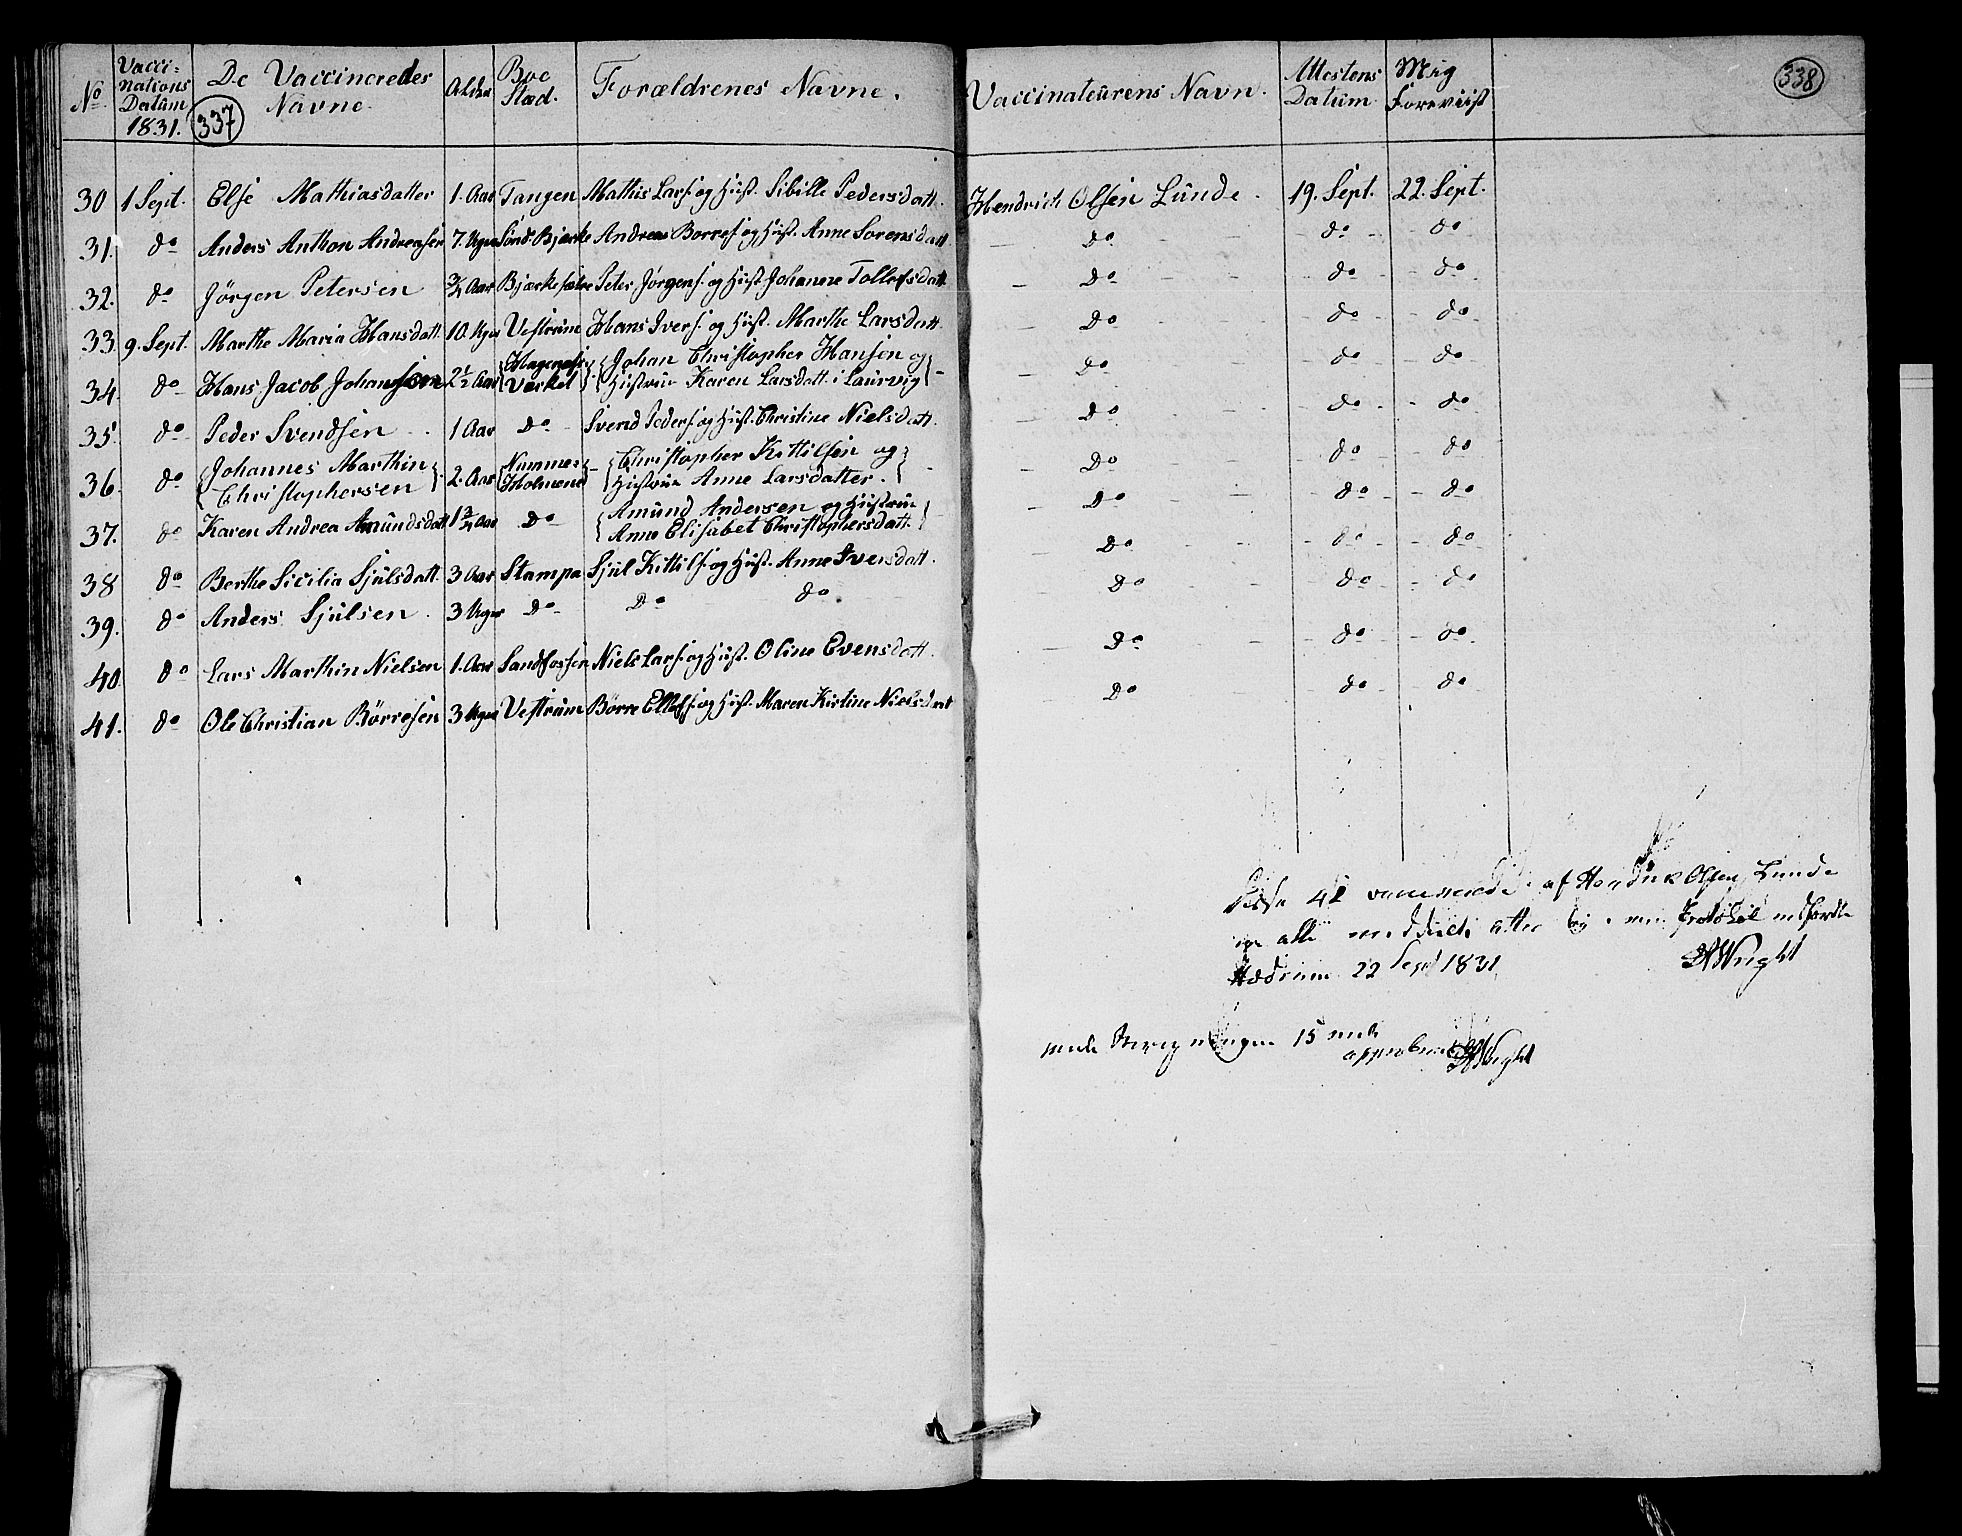 No Vacci- De Vaccineredes Alder Boe Forældrenes Navne. Vaccinateurens Navn. Attestens Mig 338
nations Navne Stæd. Datum Foreviist
Datum 337
1831.
30 1 Sept. Else Mathiasdatter 1. Aar Tangen Mathis Lars. og Hust. Sibille Pedersdatt. Hendrich Olsen Lunde. 19. Sept. 22. Sept.
31. do Anders Anthon Andreasen 7. Uger Sönd. Bjærke Andreas Borres. og Hust. Anne Sorensdatt. - do - do - do
32. do Jörgen Petersen 3/4 Aar Bjærkesætre Peter Jörgens. og Hust. Johanne Tollefsdatt. - do - do - do
33. 9. Sept. Marthe Maria Hansdatt. 10. Uger Vestrum Hans Ivers. og Hust. Marthe Larsdatt. - do - do - do
34. do Hans Jacob Johansen 2 1/2 Aar {Hagenæs Værket} {Johan Christopher Hansen og
Hustrue Karen Larsdatt. i Laurvig} - do - do - do
35. do Peder Svendsen 1 Aar do Svend Peders. og Hust. Christine Nielsdatt. - do - do - do
36. do {Johannes Marthin 2. Aar {Nummer {Christopher Kittilsen og - do - do - do
Christophersen} Holmene} Hustrue Anne Larsdatter.}
37. do Karen Andrea Amundsdatt. 1 3/4 Aar do {Amund Andersen og Hustrue
Anne Elisabet Christophersdatt.} - do - do - do
38 do Berthe Sicilia Sjulsdatt. 3 Aar Stampa Sjul Kittils. og Hust. Anne Iversdatt. - do - do - do
39. do Anders Sjulsen. 3 Uger do do do do - do - do
40 do Lars Marthin Nielsen 1. Aar Sandfossen Niels Lars. og Hust. Oline Evensdatt. - do - do - do
41. do Ole Christian Börresen 3 Uger Vestrum Börre Ellefs. og Hust. Maren Kirstine Nielsdatt do - do - do
Disse 41 vaccinerede af Hendrik Olsen Lunde
ere alle Protokol indførte
Hedrum 22 Sept 1831 Wright
15 Wright